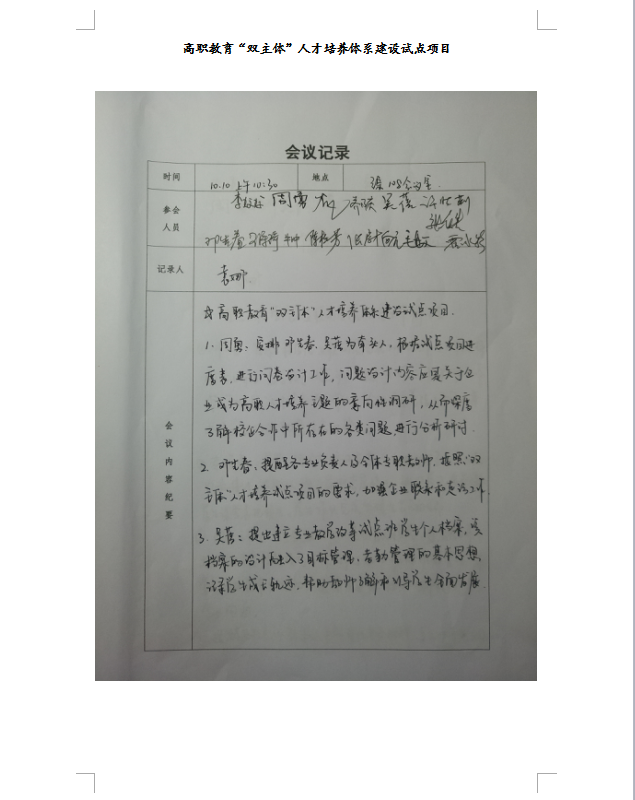 高职教育“双主体”人才培养体系建设试点项目
会议记录
时间 10.10 上午10:30 地点 108会议室
参会
人员
周勇 吴蓓
邓生春
记录人
会议内容纪要
高职教育“双主体”人才培养体系建设试点项目.
1. 周勇、安娜、邓生春、吴蓓为牵头人，根据试点项目进
度表，进行问卷设计工作，问题设计内容应是关于企
业成为高职人才培养主题的意向性调研，从而深度
了解校企合作中所存在的各类问题，进行分析研讨.
2. 邓生春：提醒各专业负责人及全体专职教师，按照“双
主体”人才培养试点项目的要求，加强企业联系和走访工作
3. 吴蓓：提出建立专业教学改革试点班学生个人档案，该
档案的设计融入了目标管理、考勤管理的基本思想，
记录学生成长轨迹，帮助教师了解和引导学生全面发展.